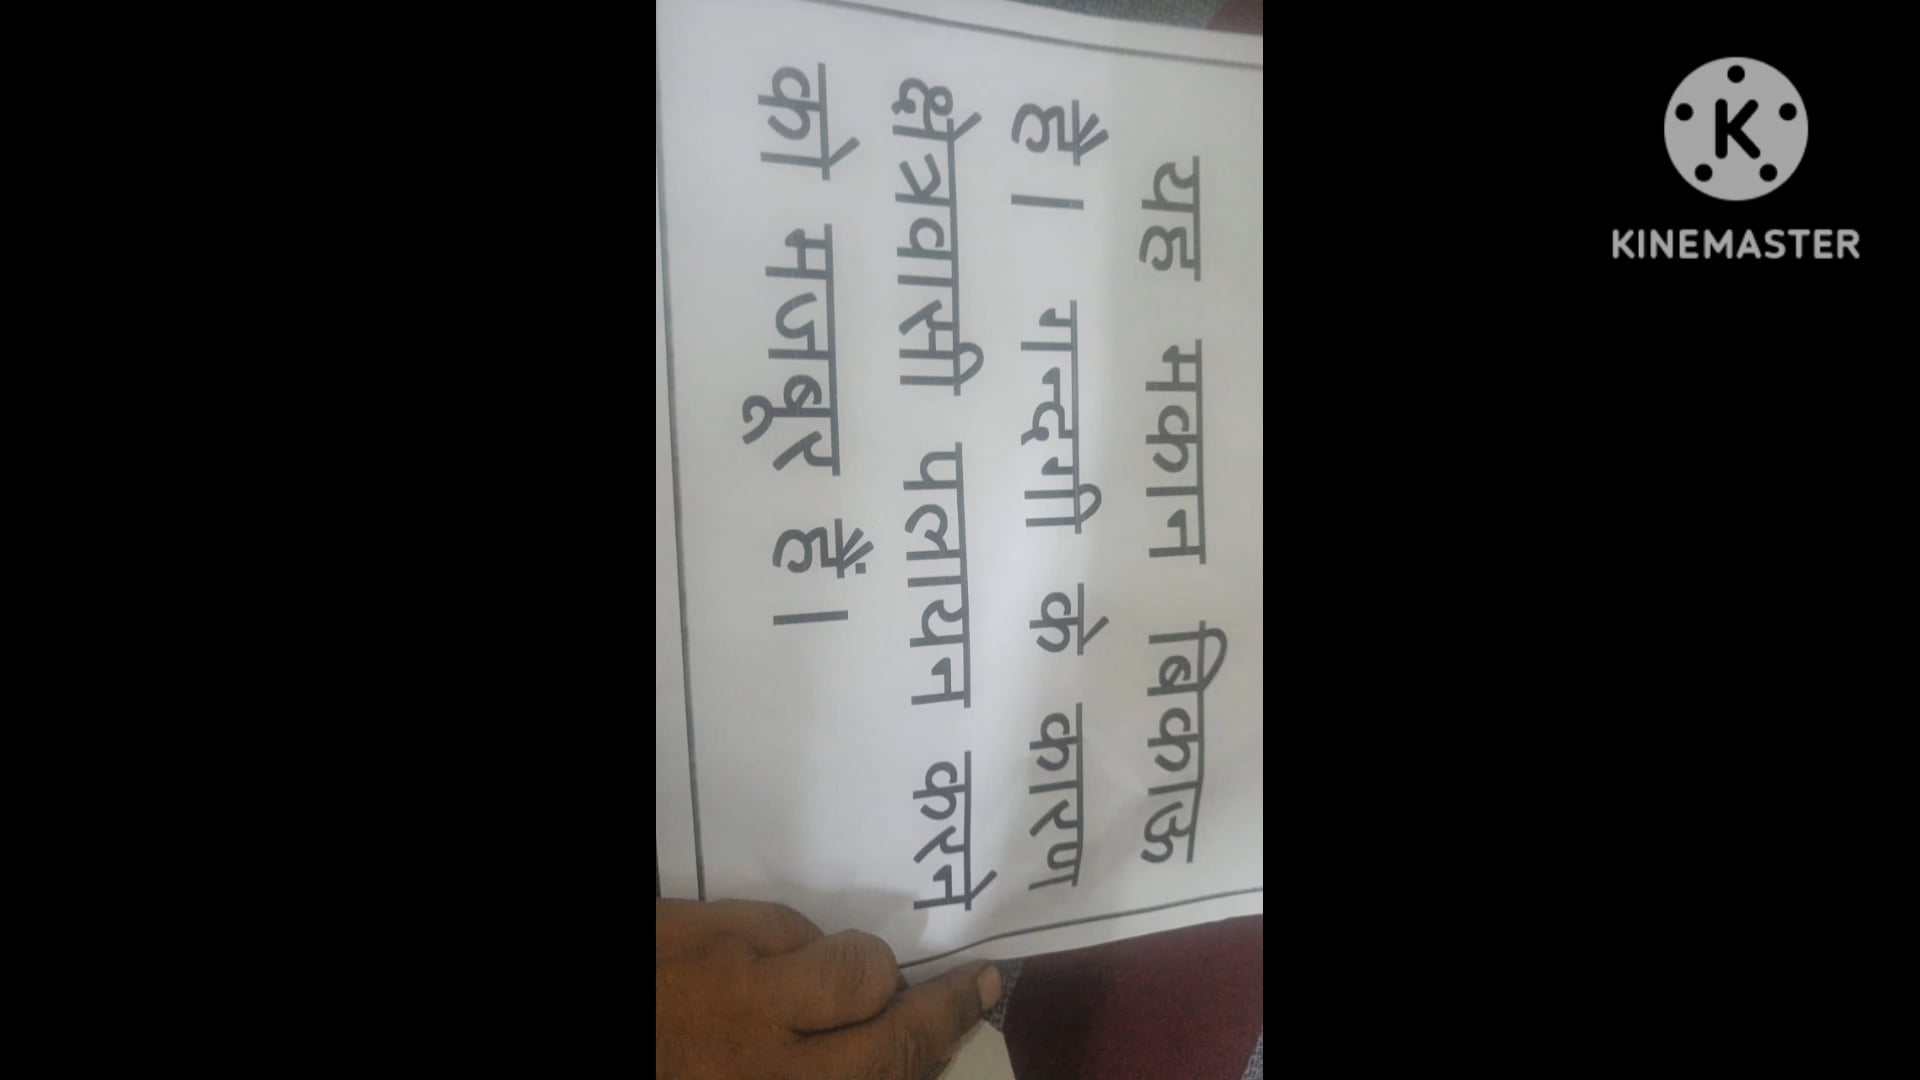 यह मकान बिकाऊ
है। गन्दगी के कारण
क्षेत्रवासी पलायन करने
को मजबूर हैं।
K
KINEMASTER